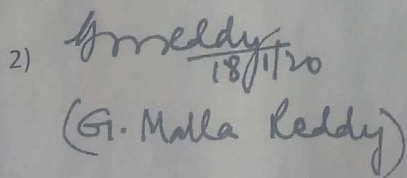 2) GMReddy
18/1/20
(G. Malla Reddy)